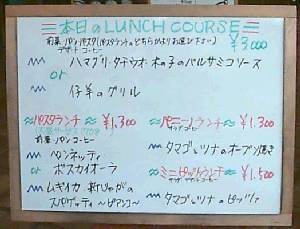 本日のLUNCH COURSE
前菜・パン・パスタ(パスタランチのどちらかよりお選び下さい)
デザート・コーヒー ¥3,000
ハマグリ・タチウオ・木の子のバルサミコソース
or
仔羊のグリル
パスタランチ ¥1,300
前菜・パン・コーヒー
ペンネッティ
ボスカイオーラ
ムギイカ 新じゃがの
スパゲッティ ~ビアンコ~
パニーノランチ ¥1,300
サラダ・コーヒー
タマゴとツナのオーブン焼き
ミニピッツァランチ ¥1,500
タマゴとツナのピッツァ